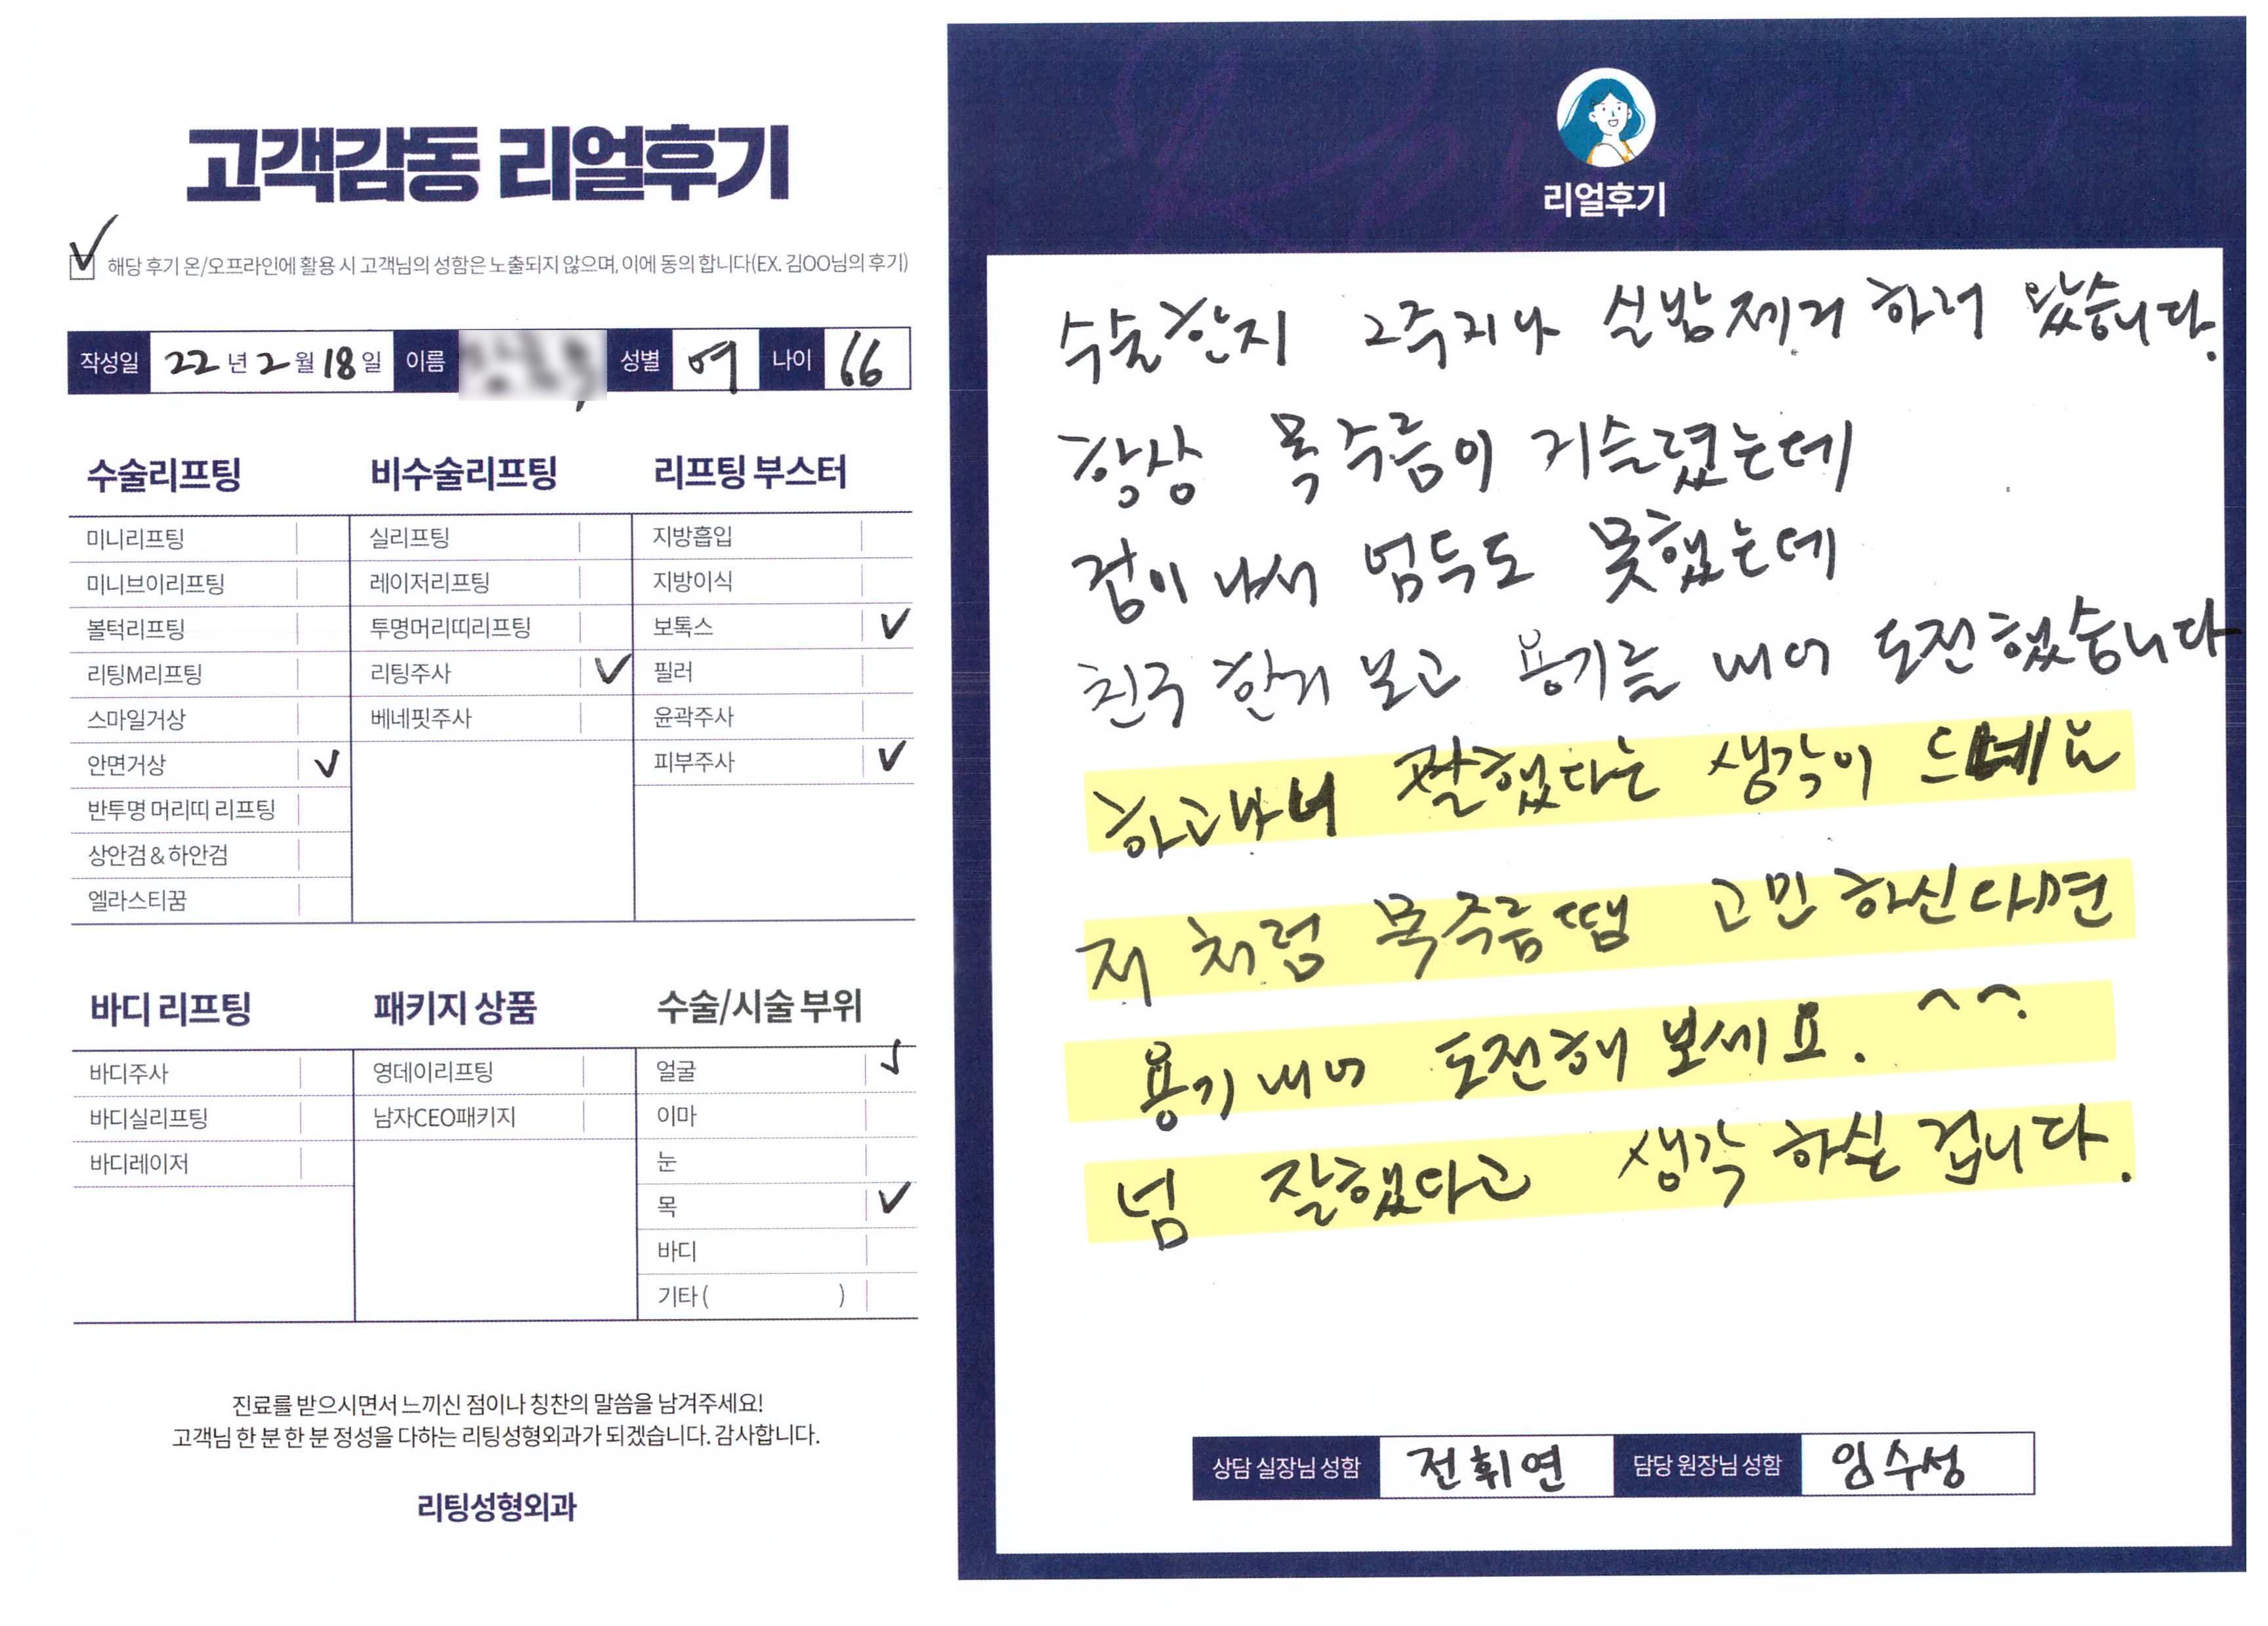 고객감동 리얼후기
해당 후기 온/오프라인에 활용 시 고객님의 성함은 노출되지 않으며, 이에 동의 합니다(EX. 김OO님의 후기)
작성일 22년 2월 18일 이름 성별 여 나이 66
수술리프팅
미니리프팅
미니브이리프팅
볼턱리프팅
리팅M리프팅
스마일거상
안면거상
반투명 머리띠 리프팅
상안검&하안검
엘라스티꿈
비수술리프팅
실리프팅
레이저리프팅
투명머리띠리프팅
리팅주사
베네핏주사
리프팅 부스터
지방흡입
지방이식
보톡스
필러
윤곽주사
피부주사
바디 리프팅
바디주사
바디실리프팅
바디레이저
패키지 상품
영데이리프팅
남자CEO패키지
수술/시술 부위
얼굴
이마
눈
목
바디
기타( )
진료를 받으시면서 느끼신 점이나 칭찬의 말씀을 남겨주세요!
고객님 한 분 한 분 정성을 다하는 리팅성형외과가 되겠습니다. 감사합니다.
리팅성형외과
리얼후기
수술한지 2주지나 실밥제거 하러 왔습니다.
항상 목주름이 거슬렸는데
겁이 나서 엄두도 못했는데
친구 한거 보고 용기를 내어 도전했습니다
하고나니 잘했다는 생각이 드네요
저 처럼 목주름땜 고민 하신다면
용기내어 도전해 보세요. ^^.
넘 잘했다고 생각 하실 겁니다.
상담 실장님 성함 전휘연 담당 원장님 성함 임수성